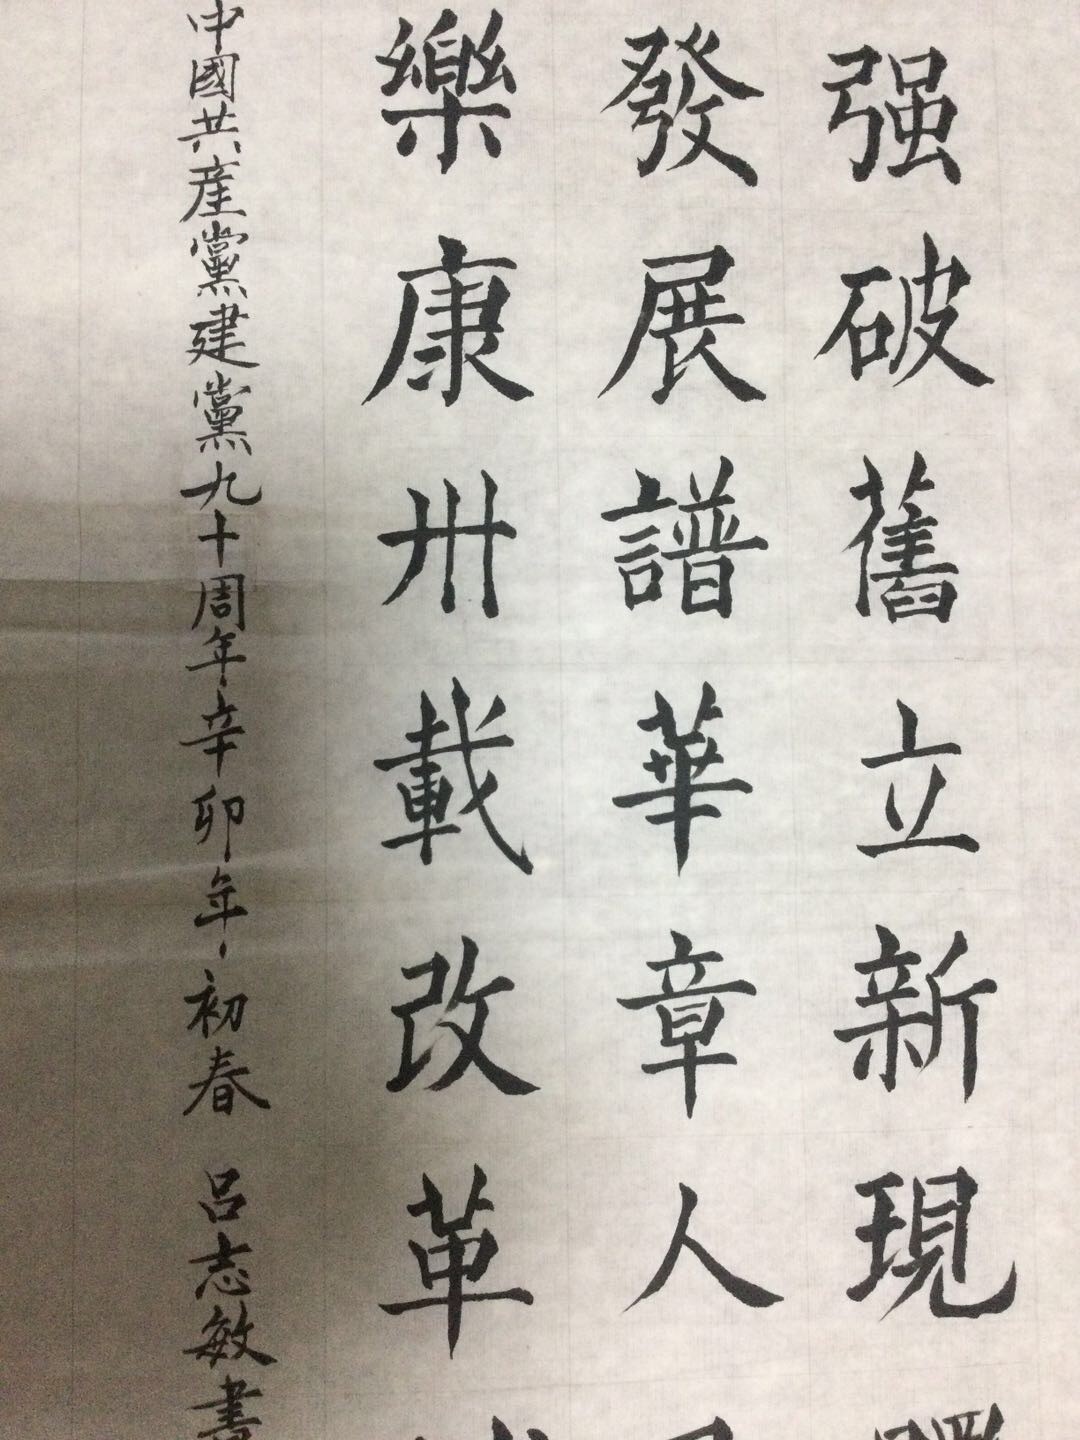 强破舊立新現
發展譜華章人
樂康卅載改革
中國共產黨建黨九十周年辛卯年初春 呂志敏書